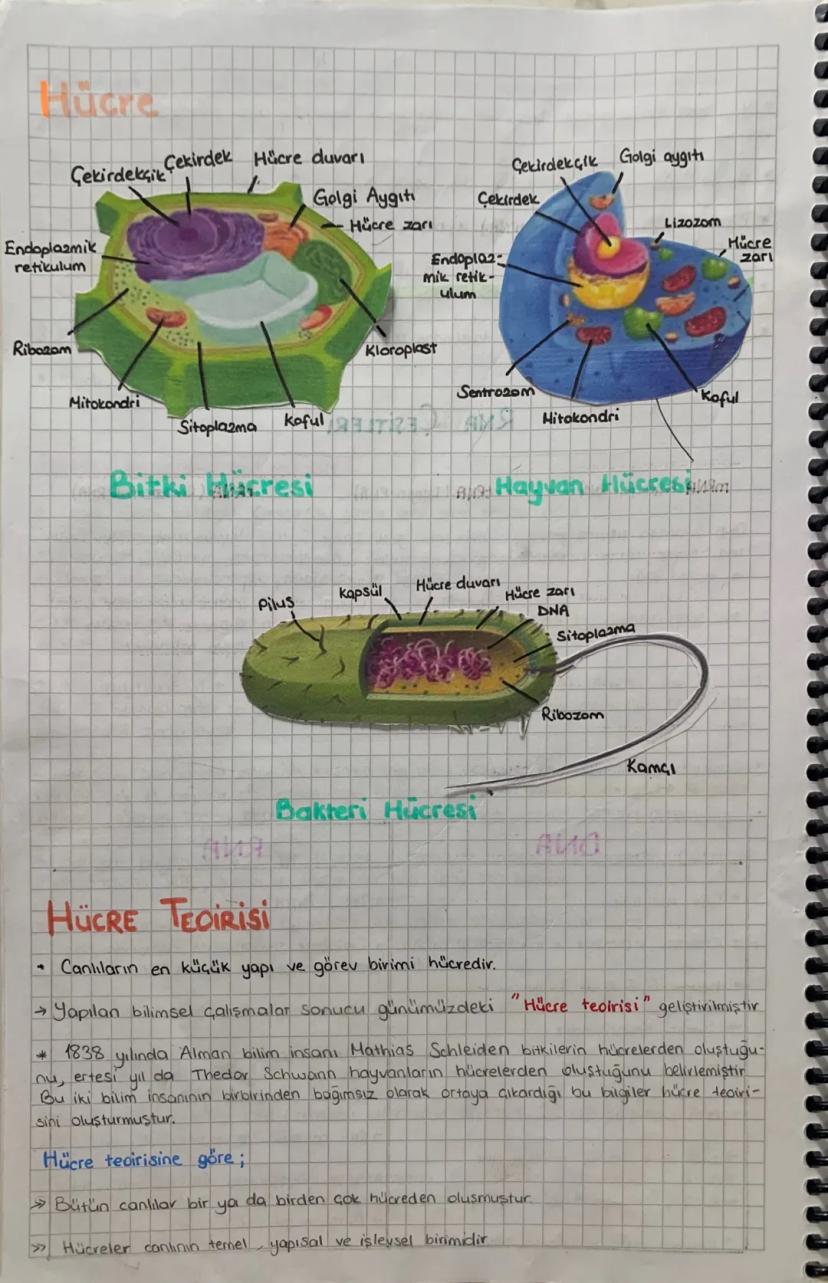 Hücre
Çekirdekçik
Çekirdek
Hücre duvarı
Golgi Aygıtı
Hücre zarı
Endoplazmik
retikulum
Ribozom
Mitokondri
Sitoplazma
Koful
Kloroplast
Bitki Hücresi
Çekirdekçik
Golgi aygıtı
Çekirdek
Lizozom
Hücre
zarı
Endoplaz-
mik retik-
ulum
Sentrozom
Mitokondri
Koful
Hayvan Hücresi
Pilus
Kapsül
Hücre duvarı
Hücre zarı
DNA
Sitoplazma
Ribozom
Kamçı
Bakteri Hücresi
HÜCRE TEOİRİSİ
• Canlıların en küçük yapı ve görev birimi hücredir.
→ Yapılan bilimsel çalışmalar sonucu günümüzdeki "Hücre teoirisi" geliştirilmiştir
* 1838 yılında Alman bilim insanı Mathias Schleiden bitkilerin hücrelerden oluştuğu-
nu, ertesi yıl da Thedor Schwann hayvanların hücrelerden oluştuğunu belirlemiştir
Bu iki bilim insanının birbirinden bağımsız olarak ortaya çıkardığı bu bilgiler hücre teoiri-
sini oluşturmuştur.
Hücre teoirisine göre;
» Bütün canlılar bir ya da birden çok hücreden oluşmuştur
» Hücreler canlının temel, yapısal ve işlevsel birimidir